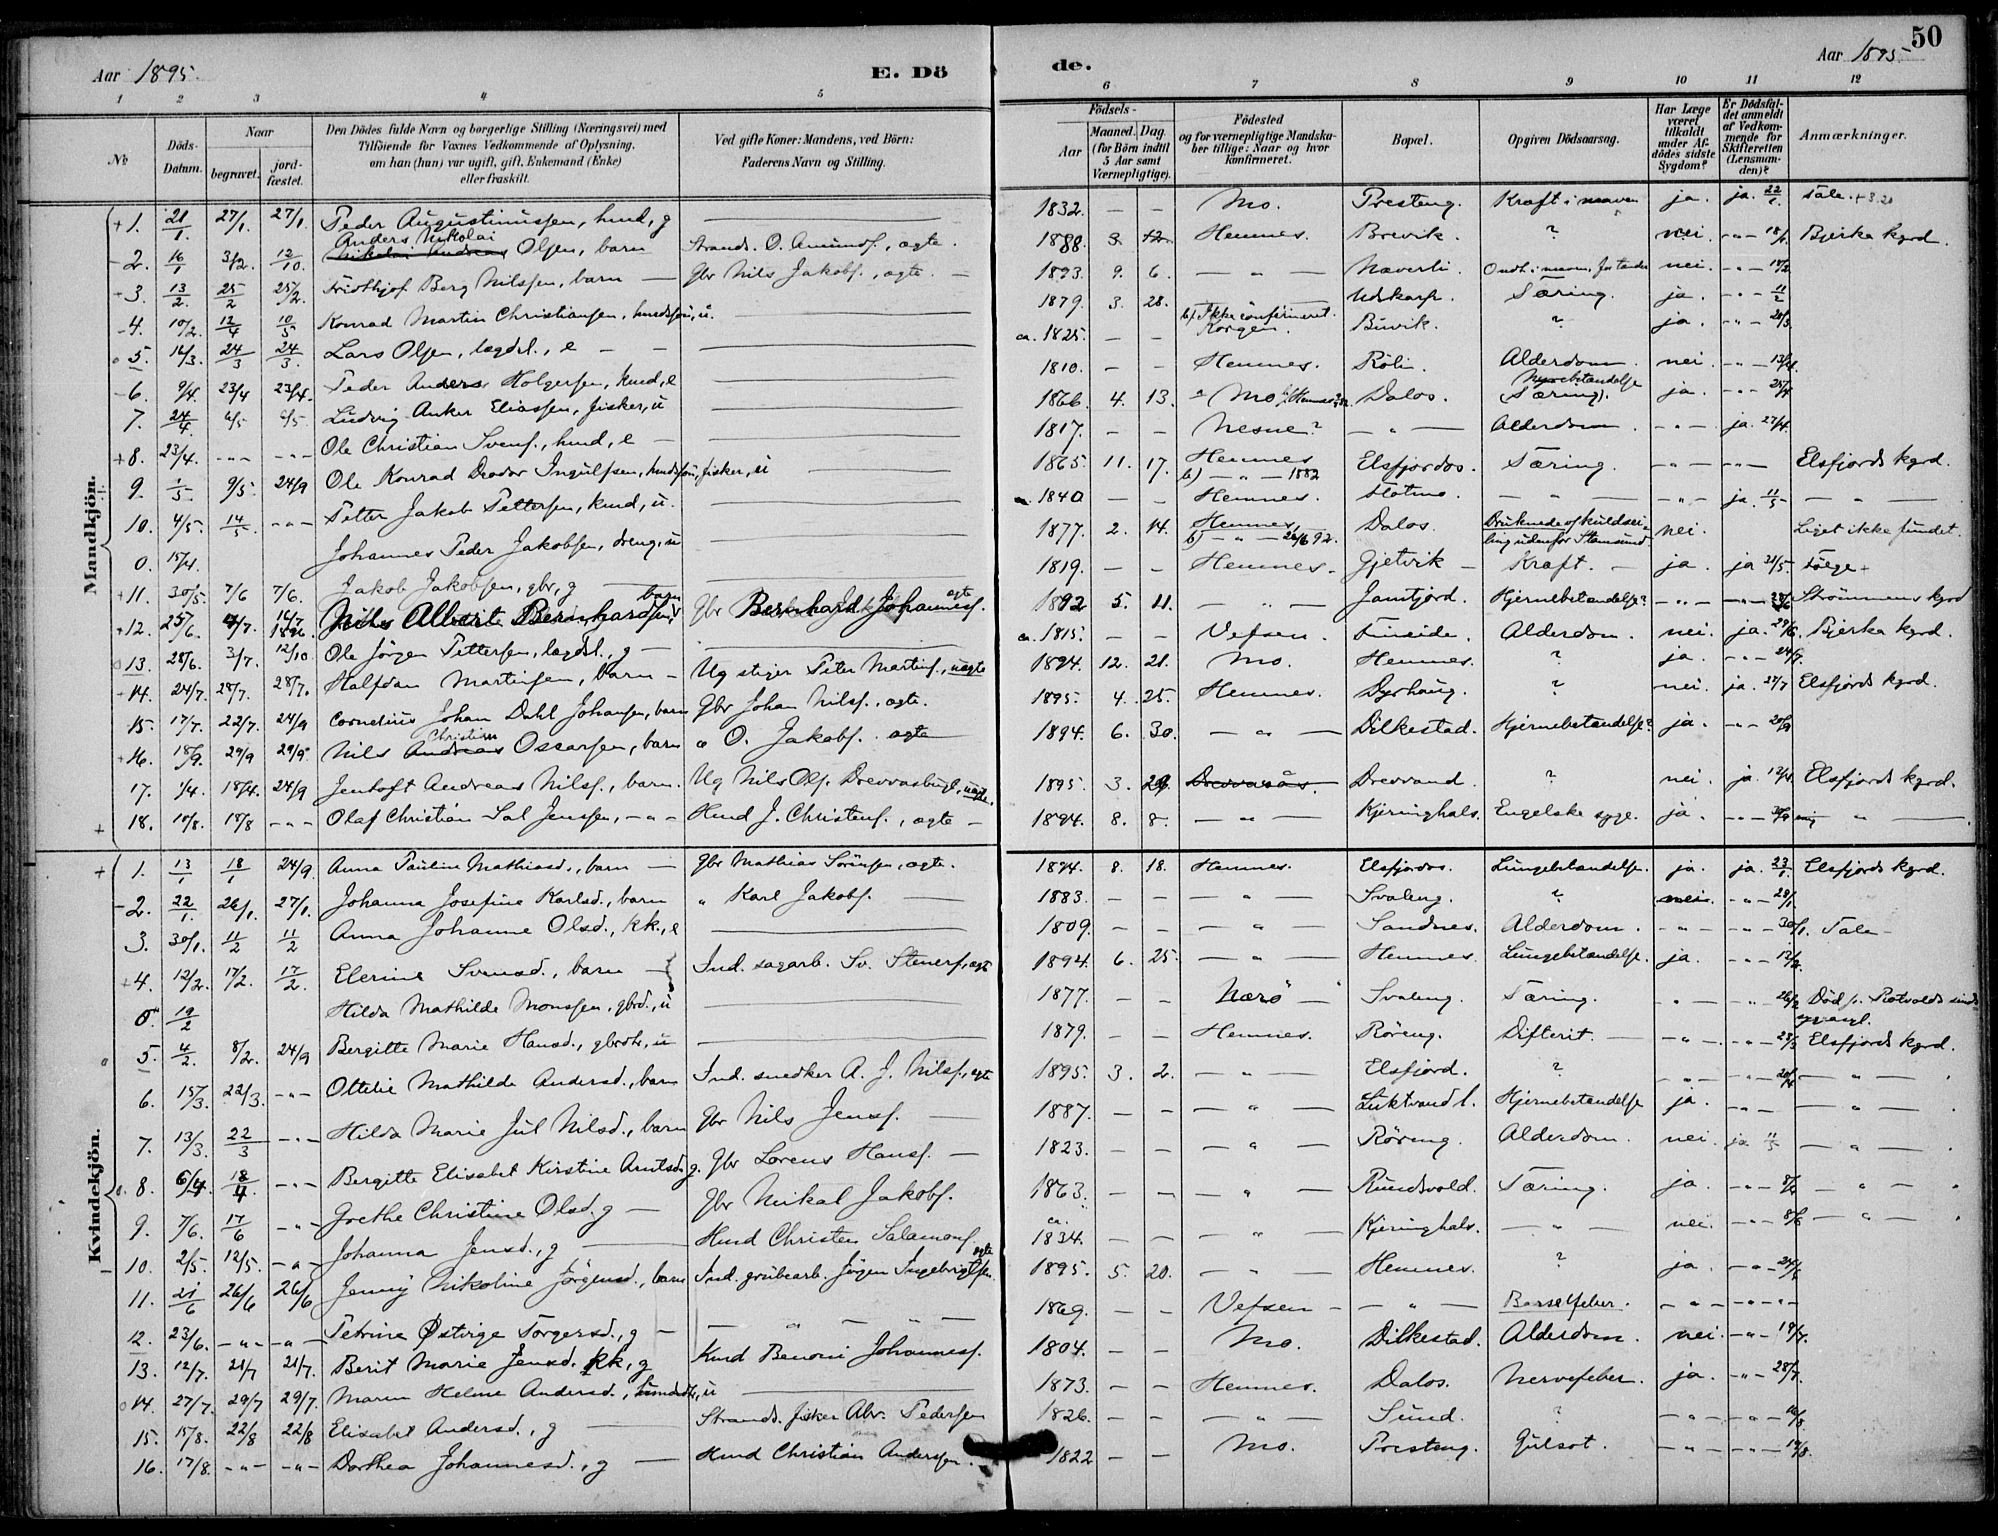 50
Aar 1895. E. Dö
de. Aar 1895.
1 2 3 4 5 6 7 8 9 10 11 12
No
Döds-Datum.
Naar
begravet. jord-fæstet.
Den Dödes fulde Navn og borgerlige Stilling (Næringsvei) med
Tilföiende for Voxnes Vedkommende af Oplysning,
om han (hun) var ugift, gift, Enkemand (Enke)
eller fraskilt.
Ved gifte Koner: Mandens, ved Börn:
Faderens Navn og Stilling.
Födsels-
Aar
Maaned. Dag.
(for Börn indtil
5 Aar samt
Værnepligtige).
Födested
og for værnepligtige Mandska-
ber tillige: Naar og hvor
konfirmeret.
Bopæl.
Opgiven Dödsaarsag.
Har Læge
været
tilkaldt
under Af-
dödes sidste
Sygdom?
Er Dödsfal-
det anmeldt
af Vedkom-
mende for
Skifteretten
(Lensman-
den)?
Anmærkninger.
Mandkjön.
+ 1. 21/1 27/1 27/1 Peder Augustinussen, hmd, g 1832. — — Mo. Presteng. Kræft i maven ja. ja. 22/1 Tale.
- 2. 16/1 3/2 12/10 Anders Nikolai Olsen, barn Strands. O. Amunds., ægte. 1888 3. 12. Hemnes. Brevik. ? nei. -"- 18/1 Bjerka kgrd.
+ 3. 13/2 25/2 25/2 Fridthjof Berg Nilssen, barn Gbr Nils Jakobs., ægte. 1893 9. 6. — " — Næverli. nei. -"-
- 4. 10/2 12/4 10/5 Konrad Martin Christiansen, hmdssøn, u. 1879. 3. 28. b) Ikke confirmeret. Udskarp. Tæring. ja. -"- 11/2
5. 16/3 24/3 24/3 Lars Olsen, lægdsl., e ca. 1825. — — Korgen. Buvik. ? ja. -"- 20/3
- 6. 9/4 23/4 23/4 Peder Anders Holgersen, kmd, e 1810. — — Hemnes. Röli. Alderdom. nei. -"- 13/4
7. 24/4 6/5 6/5 Ludvig Anker Eliassen, fisker, u 1866. 4. 13. Mo Dalos. Nyrebetændelse (Tæring). ja. -"- 25/4
+ 8. 23/4. -"- -"- Ole Christian Svens., hmd, e 1817. — — Nesne? — " — Alderdom. -"- ja. 27/4
9. 1/5 9/5 24/9 Ole Konrad Deodor Ingulfsen, hmdssøn, fisker, u 1865. 11. 17. Hemnes b) — " — 1882 Elsfjordos. Tæring. -"- -"- Elsfjords kgrd.
10. 4/5 14/5 -"- Petter Jakob Pettersen, kmd, u. 1840 — — Hemnes. — " — -"- ja. 11/5 — " —
0. 15/4. Johannes Peder Jakobsen, dreng, u 1877. 2. 14. Hemnes b) — " — 26/6 92. Dalos. Druknede af kuldseiling udenfor Stamsund nei. Liget ikke fundet.
+ 11. 30/5 7/6 7/6. Jakob Jakobsen, gbr, g 1819. — — Hemnes. Gjetvik Kræft. ja. ja 21/5.
+ 12. 25/6 4/7. 14/7 1896. Nils Albert Bernhardsen barn Gbr Bernhard Johanness. ægte 1892 5. 11. — " — Jamtjord. Hjernebetændelse? -"- Strömmens kgrd
13. 28/6. 3/7. 12/10 Ole Jörgen Pettersen, lægdsl., g 1815. — — Vefsen. Fineide. Alderdom. nei. ja. 29/6. Bjerka kgrd.
+ 14. 24/7. 28/7. 28/7. Halfdan Martinsen, barn Ug stiger Peter Martins., uægte 1894. 12. 21. Mo. Hemnes. ? ja. -"- 24/7.
15. 17/7. 22/7. 24/9 Cornelius Johan Dahl Johansen, barn Gbr Johan Nils., ægte. 1895. 4. 25. Hemnes. Dyrhaug. ? nei. ja. 27/7 Elsfjords kgrd.
+ 16. 18/9. 29/9 29/9 Nils Christian Oscarsen, barn " O. Jakobs. ægte 1894. 6. 30. — " — Dilkestad. Hjernebetændelse? ja. -"- 20/9
17. 1/4. 18/4. 24/9 Jentoft Andreas Nilss., barn. Ug Nils Ols. uægte. 1895. 3. 29 Drevvasaas. Drevvand. ? nei. ja. 12/4. Elsfjords kgrd.
+ 18. 10/8. 18/8 -"- Olaf Christian Sal Jenssen, -"- Hmd J. Christens., ægte 1894. 8. 8. — " — Kjeringhals. Engelske syge. ja. — " —
Kvindekjön.
+ 1. 13/1 18/1 24/9 Anna Pauline Mathiasd., barn Gbr Mathias Sörensen, ægte. 1894. 8. 18. Hemnes. Elsfjordos. Lungebetændelse. ja. ja. 23/1 Elsfjords kgrd.
- 2. 22/1. 26/1. 27/1. Johanna Josefine Karlsd., barn " Karl Jakobs. 1883. — — — " — Svaleng. ? nei. -"- 28/1
3. 30/1. 11/2 11/2 Anna Johanne Olsd., kk., e 1809. — — — " — Sandnes. Alderdom. -"- -"- 30/1. Tale
+ 4. 12/2. 17/2. 17/2 Elerine Svensd., barn Ind. sagarb. Sv. Steners., ægte 1894. 6. 25. — " — Hemnes. Lungebetændelse. ja. -"- 12/2.
0. 19/2 Hilda Mathilde Monssen, gbrd., u 1877. — — Nærö Svaleng. Tæring. -"- -"- 26/2 Död p. Rotvolds
5. 4/2. 8/2. 24/9 Bergitte Marie Hansd., gbrdtr, u 1879. — — Hemnes. Röreng. Difterit. -"- -"- 28/3 Elsfjords kgrd.
6. 15/3. 22/3. -"- Ottelie Mathilde Andersd., barn Ind. snedker A. J. Nils., ægte 1895. 3. 2. — " — Elsfjord. ? -"- -"- — " —
7. 13/3. 22/3 -"- Hilda Marie Jul Nilsd., barn Gbr Nils Jens. 1887. — — — " — Luktvandl. Hjernebetændelse ja. -"- — " —
8. 6/4 18/4. -"- Bergitte Elisabet Kirstine Arntsd. g. Gbr Lorens Hans. 1823. — — — " — Röreng. Alderdom. nei. ja. — " —
9. 7/6. 17/6 -"- Grethe Christine Olsd. g Gbr Mikal Jakobs. 1863. — — — " — Rundvold. Tæring. ja. -"- — " —
10. 2/5. 12/5. -"- Johanna Jensd., g Hmd Christen Salamons. ca. 1834. — — — " — Kjeringhals. — " — nei. -"- 8/6 — " —
11. 21/6 26/6 26/6 Jenny Nikoline Jörgensd., barn Ind. grubearb. Jörgen Ingebrigtsen ægte 1895. 5. 20. — " — Hemnes. ? ja. -"- 24/6
12. 23/6. -"- -"- Petrine Østvige Torgersd., g — " — " — 1869. — — Vefsen — " — Barselfeber. -"- -"-
13. 12/7. 21/7 21/7. Berit Marie Jensd. kk, g Kmd Benoni Johanness. 1804. — — Mo. Dilkestad. Alderdom. nei. -"- 19/7.
14. 27/7. 29/7 29/7. Maren Helene Andersd., u 1873. — — Hemnes. Dalos. Nervefeber. ja. -"- 28/7.
15. 15/8. 22/8 22/8 Elisabet Andersd., g Strands. fisker Abr. Pedersen 1826. — — — " — Sund. ? -"- -"-
16. 17/8. -"- -"- Dorthea Johannesd., g Hmd Christian Andersen. 1822 — — Mo. Presteng. Gulsot. -"- -"- 19/8.